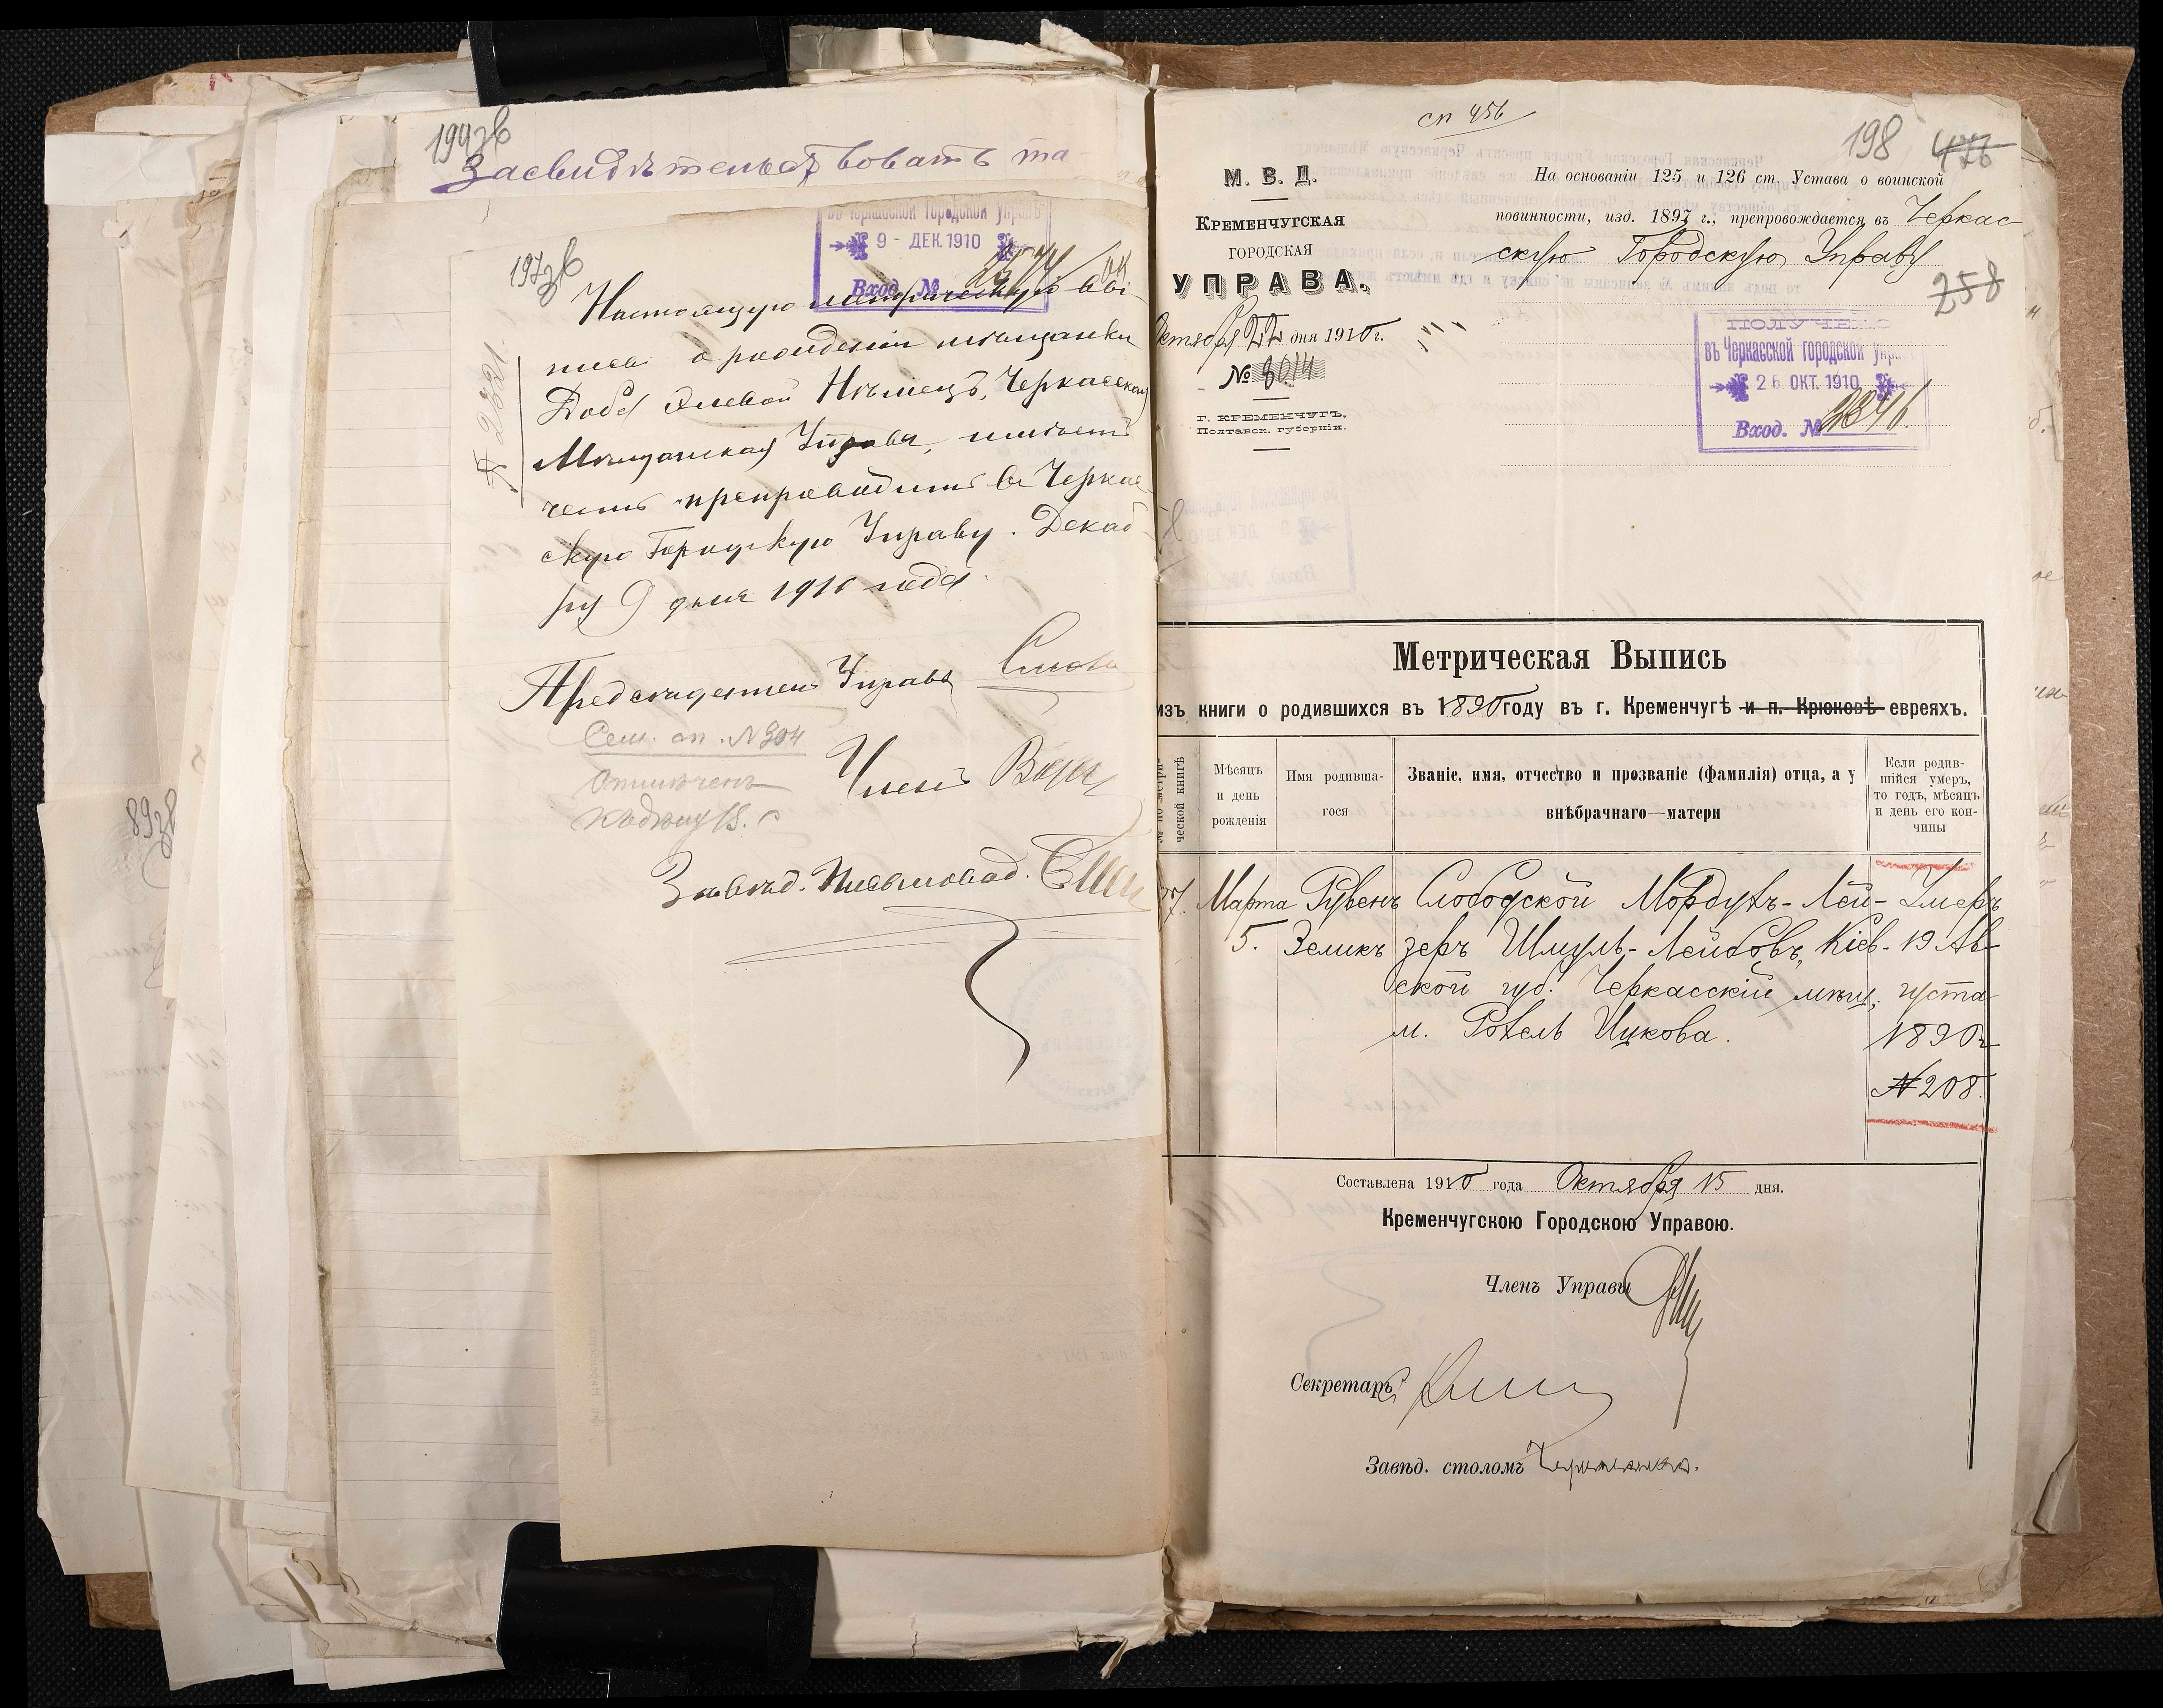 199зв
Засвидѣтельствовать та-
197зв
въ Черкасской городской управѣ
9 - ДЕК. 1910
Вход. №
Настоящую метрическую выпи-
о рожденіи мѣщанки
Нѣмецъ, Черкасская
Мѣщанская Управа, имѣетъ
честь препроводить въ Черкас-
скую Городскую Управу. Декаб-
ря 9 дня 1910 года.
№ 2621.
Предсѣдатель Управы
Сем. сп. №304
Отмѣченъ
Членъ
Завѣд. Письмовод.
89зв
сп 456
198 476
258
М. В. Д.
КРЕМЕНЧУГСКАЯ
ГОРОДСКАЯ
УПРАВА.
Октября 22 дня 1910 г.
№ 8014.
Г. КРЕМЕНЧУГЪ,
Полтавск. губерніи.
На основаніи 125 и 126 ст. Устава о воинской
повинности, изд. 1897 г., препровождается въ Черкас-
скую Городскую Управу
ПОЛУЧЕНО
въ Черкасской городской упра
26 ОКТ. 1910
Вход. № 2346.
Метрическая Выпись
изъ книги о родившихся въ 1890 году въ г. Кременчугѣ и п. Крюковѣ евреяхъ.
№ по метри-
ческой книгѣ
Мѣсяцъ
и день
рожденія
Имя родивша-
гося
Званіе, имя, отчество и прозваніе (фамилія) отца, а у
внѣбрачнаго—матери
Если родив-
шійся умеръ,
то годъ, мѣсяцъ
и день его кон-
чины
Марта Рувенъ Слободской Мордухъ-Лей- Умеръ
5. Зеликъ зеръ Шмуль-Лейбовъ, Кіев- 19 Ав-
ской губ. Черкасскій мѣщ, густа
м. Рохель Ицкова. 1890 г
№ 208.
Составлена 1910 года Октября 15 дня.
Кременчугскою Городскою Управою.
Членъ Управы
Секретарь
Завѣд. столомъ